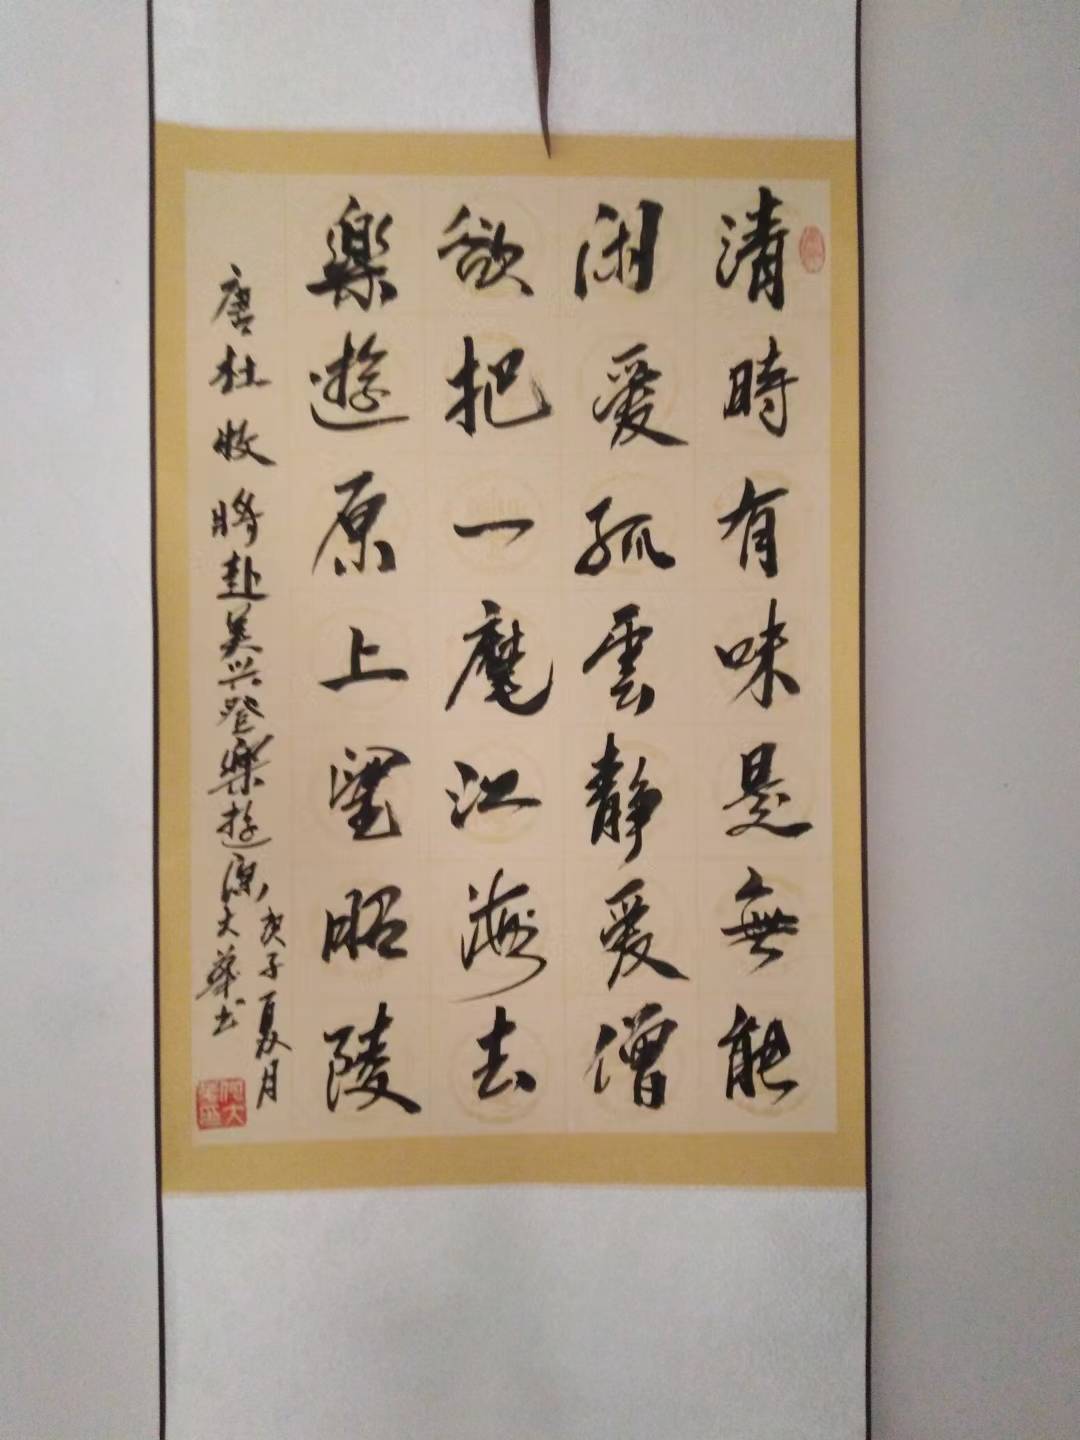 清時有味是無能
闲爱孤雲静爱僧
欲把一麾江海去
樂遊原上望昭陵
唐杜牧將赴吴兴登樂遊原大華书
庚子夏月